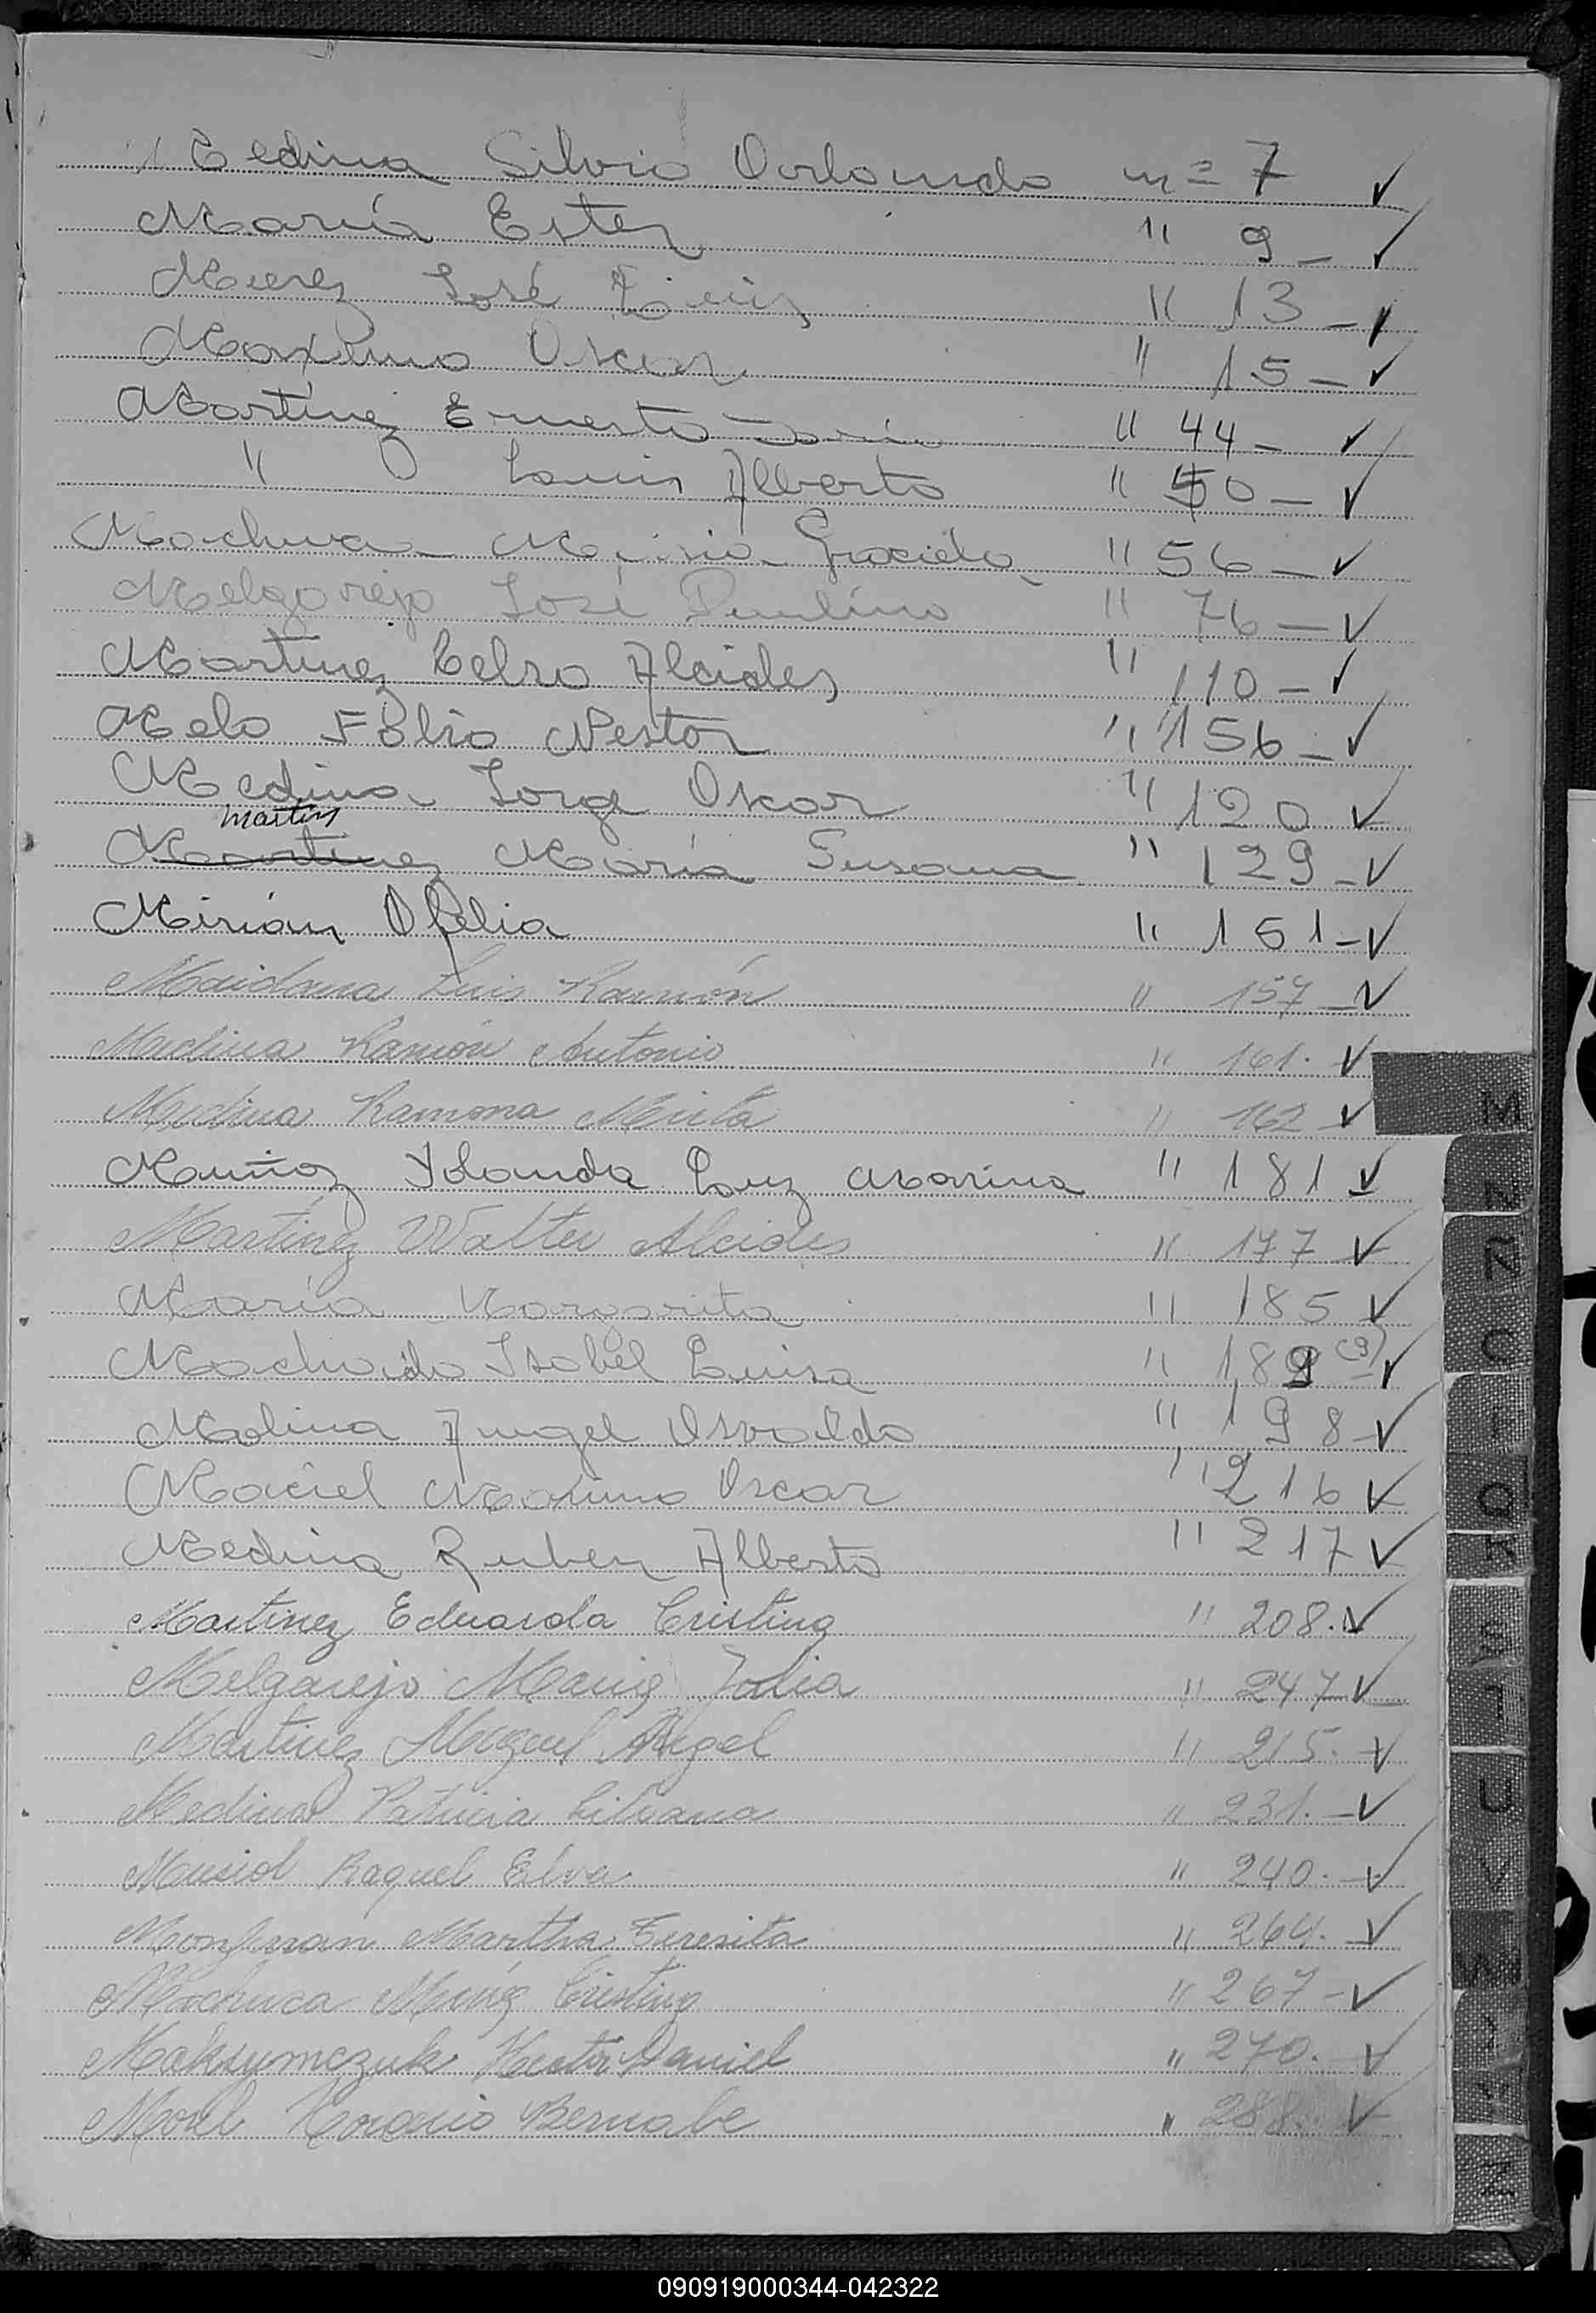 Medina Silvio Orlando nº 7 ✓
María Ester " 9 - ✓
Merez José Luis " 13 - ✓
Maxlmo Oscar " 15 - ✓
Martínez Ernesto " 44 - ✓
" Luis Alberto " 50 - ✓
Machuca María Graciela " 56 - ✓
Melgarejo José Paulino " 76 - ✓
Martinez Celso Alcides " 110 - ✓
Melo Fabio Nestor " 156 - ✓
Medina Jorge Oscar " 120 ✓
Martins
Martinez María Susana " 129 - ✓
Mirián Ofelia " 151 - ✓
Maidana Luis Ramón " 157 - ✓
Medina Ramón Antonio " 161. ✓
Medina Ramona Mirta " 162 ✓
Muñoz Yolanda Luz Marina " 181 ✓
Martínez Walter Alcides " 177 ✓
María Margarita " 185 ✓
Machado Isabel Luisa " 189 (9) - ✓
Molina Angel Osvaldo " 198 - ✓
Maciel Marino Oscar " 216 ✓
Medina Ruben Alberto " 217 ✓
Martinez Eduarda Cristina " 208. ✓
Melgarejo María Julia " 247 ✓
Martinez Miguel Angel " 215. - ✓
Medina Patricia Liliana " 231. - ✓
Maciel Raquel Elva " 240. - ✓
Monferran Martha Teresita " 264. - ✓
Machuca María Cristina " 267 - ✓
Maksymczuk Hector Daniel " 270. - ✓
Morel Horacio Bernabe " 288. ✓
M
N
Ñ
O
P
Q
R
S
T
U
V
W
X
Y
Z
090919000344-042322